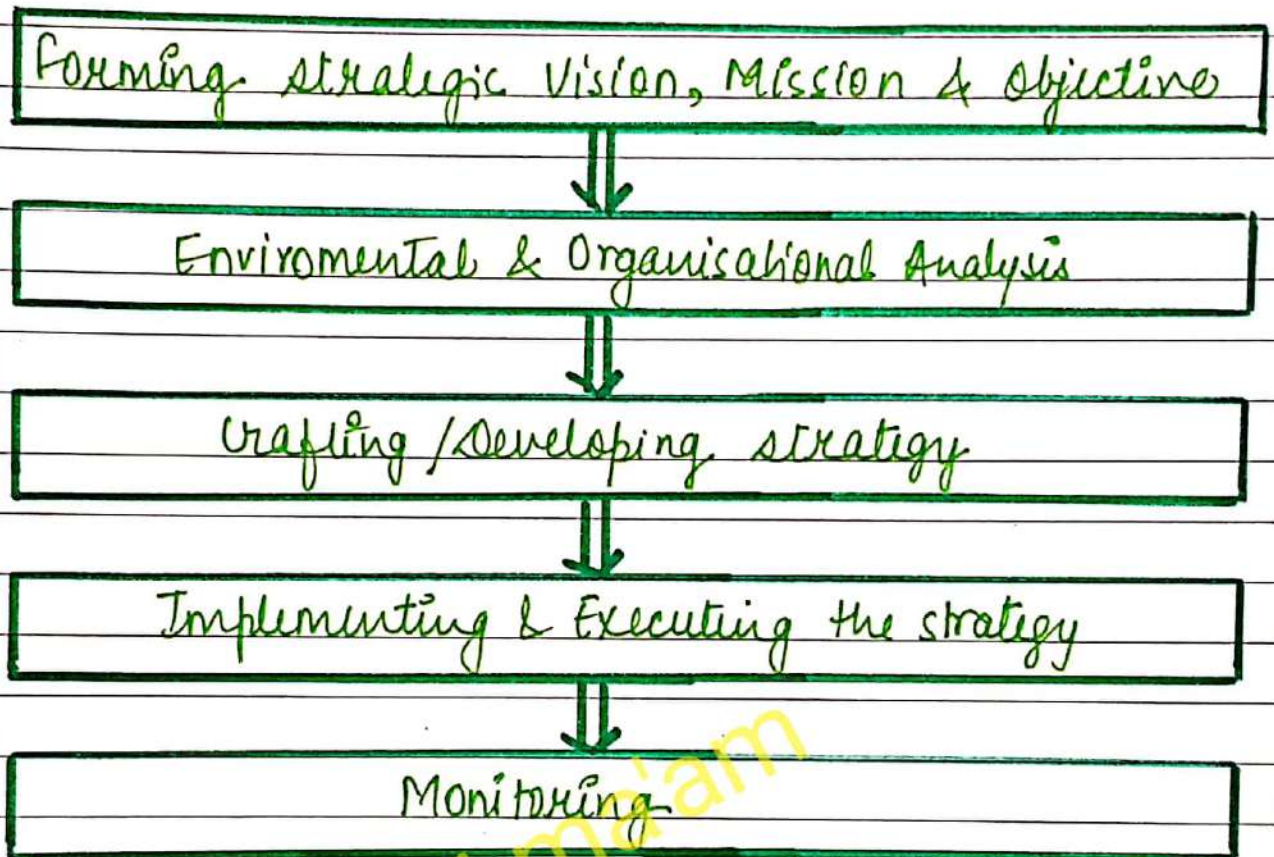 Forming strategic Vision, Mission & Objective
Enviromental & Organisational Analysis
Crafting / Developing strategy
Implementing & Executing the strategy
Monitoring
ma'am